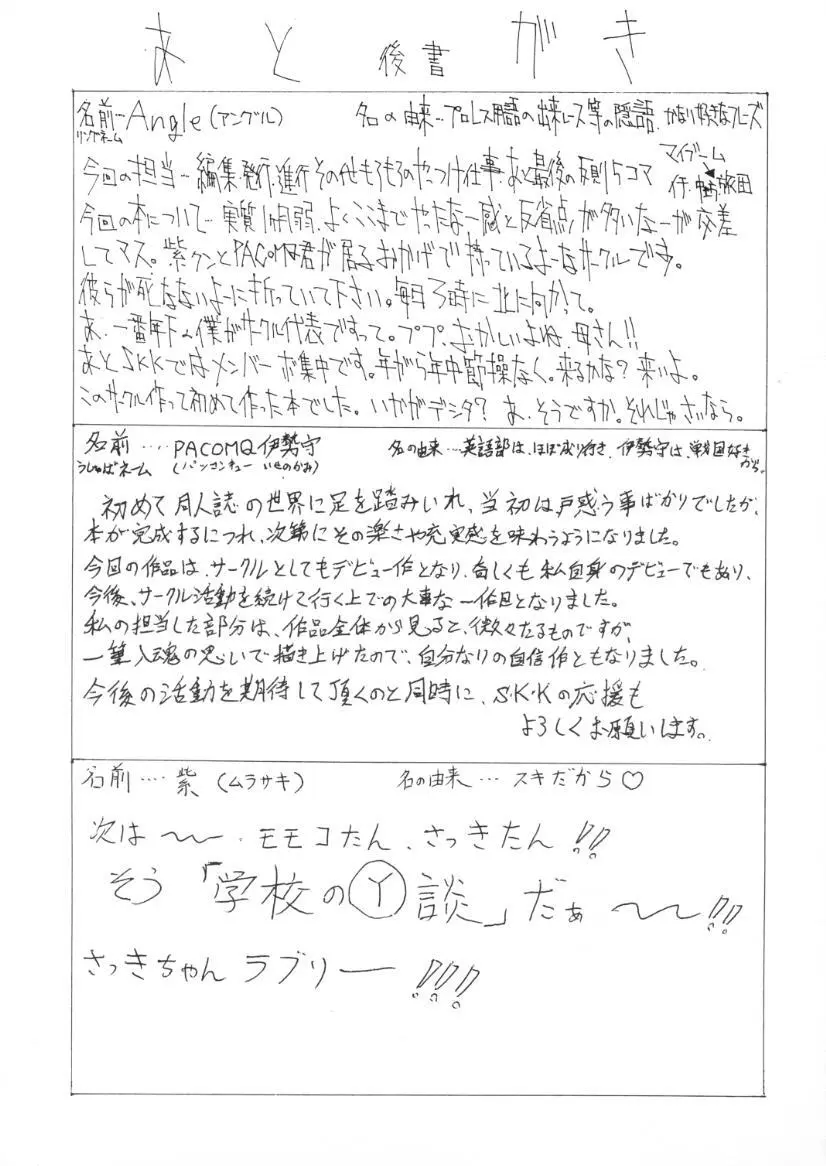 あと 後書 がき
名前…Angle(アングル) 名の由来…プロレス用語の出来レース等の隠語.かなり好きなフレーズ
リングネーム
マイブーム
今回の担当…編集,発行,進行その他もろもろのやっつけ仕事.あと最後の反則5コマ
今回の本について…実質1ヶ月弱.よくここまでやったなー感と反省点が多いなーが交差
してマス。紫クンとPACOMQ君が居るおかげで持っているよーなサークルです。
彼らが死なないよーに祈っていて下さい。毎日3時に北に向かって。
あ.一番年下の僕がサークル代表ですって。ププ.おかしいよね.母さん!!
あとSKKではメンバー募集中です。年がら年中節操なく。来るかな?来いよ。
このサークル作って初めて作った本でした。いかがデシタ?あ.そうですか。それじゃさいなら。
名前…. PACOMQ伊勢守 名の由来…英語部は、ほぼ成り行き、伊勢守は、戦国好きから。
うしゅばネーム (パンコンキュー いせのかみ)
初めて同人誌の世界に足を踏みいれ、当初は戸惑う事ばかりでしたが、
本が完成するにつれ、次第にその楽さや充実感を味わうようになりました。
今回の作品は、サークルとしてもデビュー作となり、奇しくも私自身のデビューでもあり、
今後、サークル活動を続けて行く上での大事な一作目となりました。
私の担当した部分は、作品全体から見ると、微々たるものですが、
一筆入魂の思いで描き上げたので、自分なりの自信作ともなりました。
今後の活動を期待して頂くのと同時に、S・K・Kの応援も
よろしくお願いします。
名前…. 紫(ムラサキ) 名の由来… スキだから♡
次は〜〜.モモコたん、さっきたん!!
そう「学校のⓎ談」だぁ〜〜!!
さっきちゃん ラブリー!!!